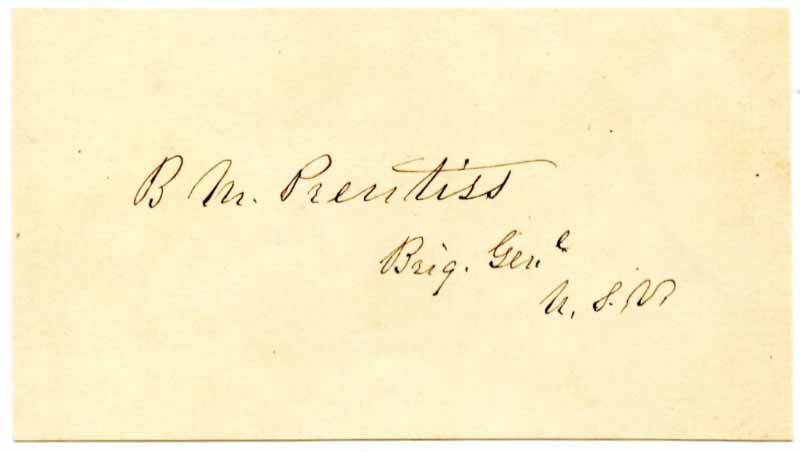 B M. Prentiss
Brig. Genl
U. S. V.